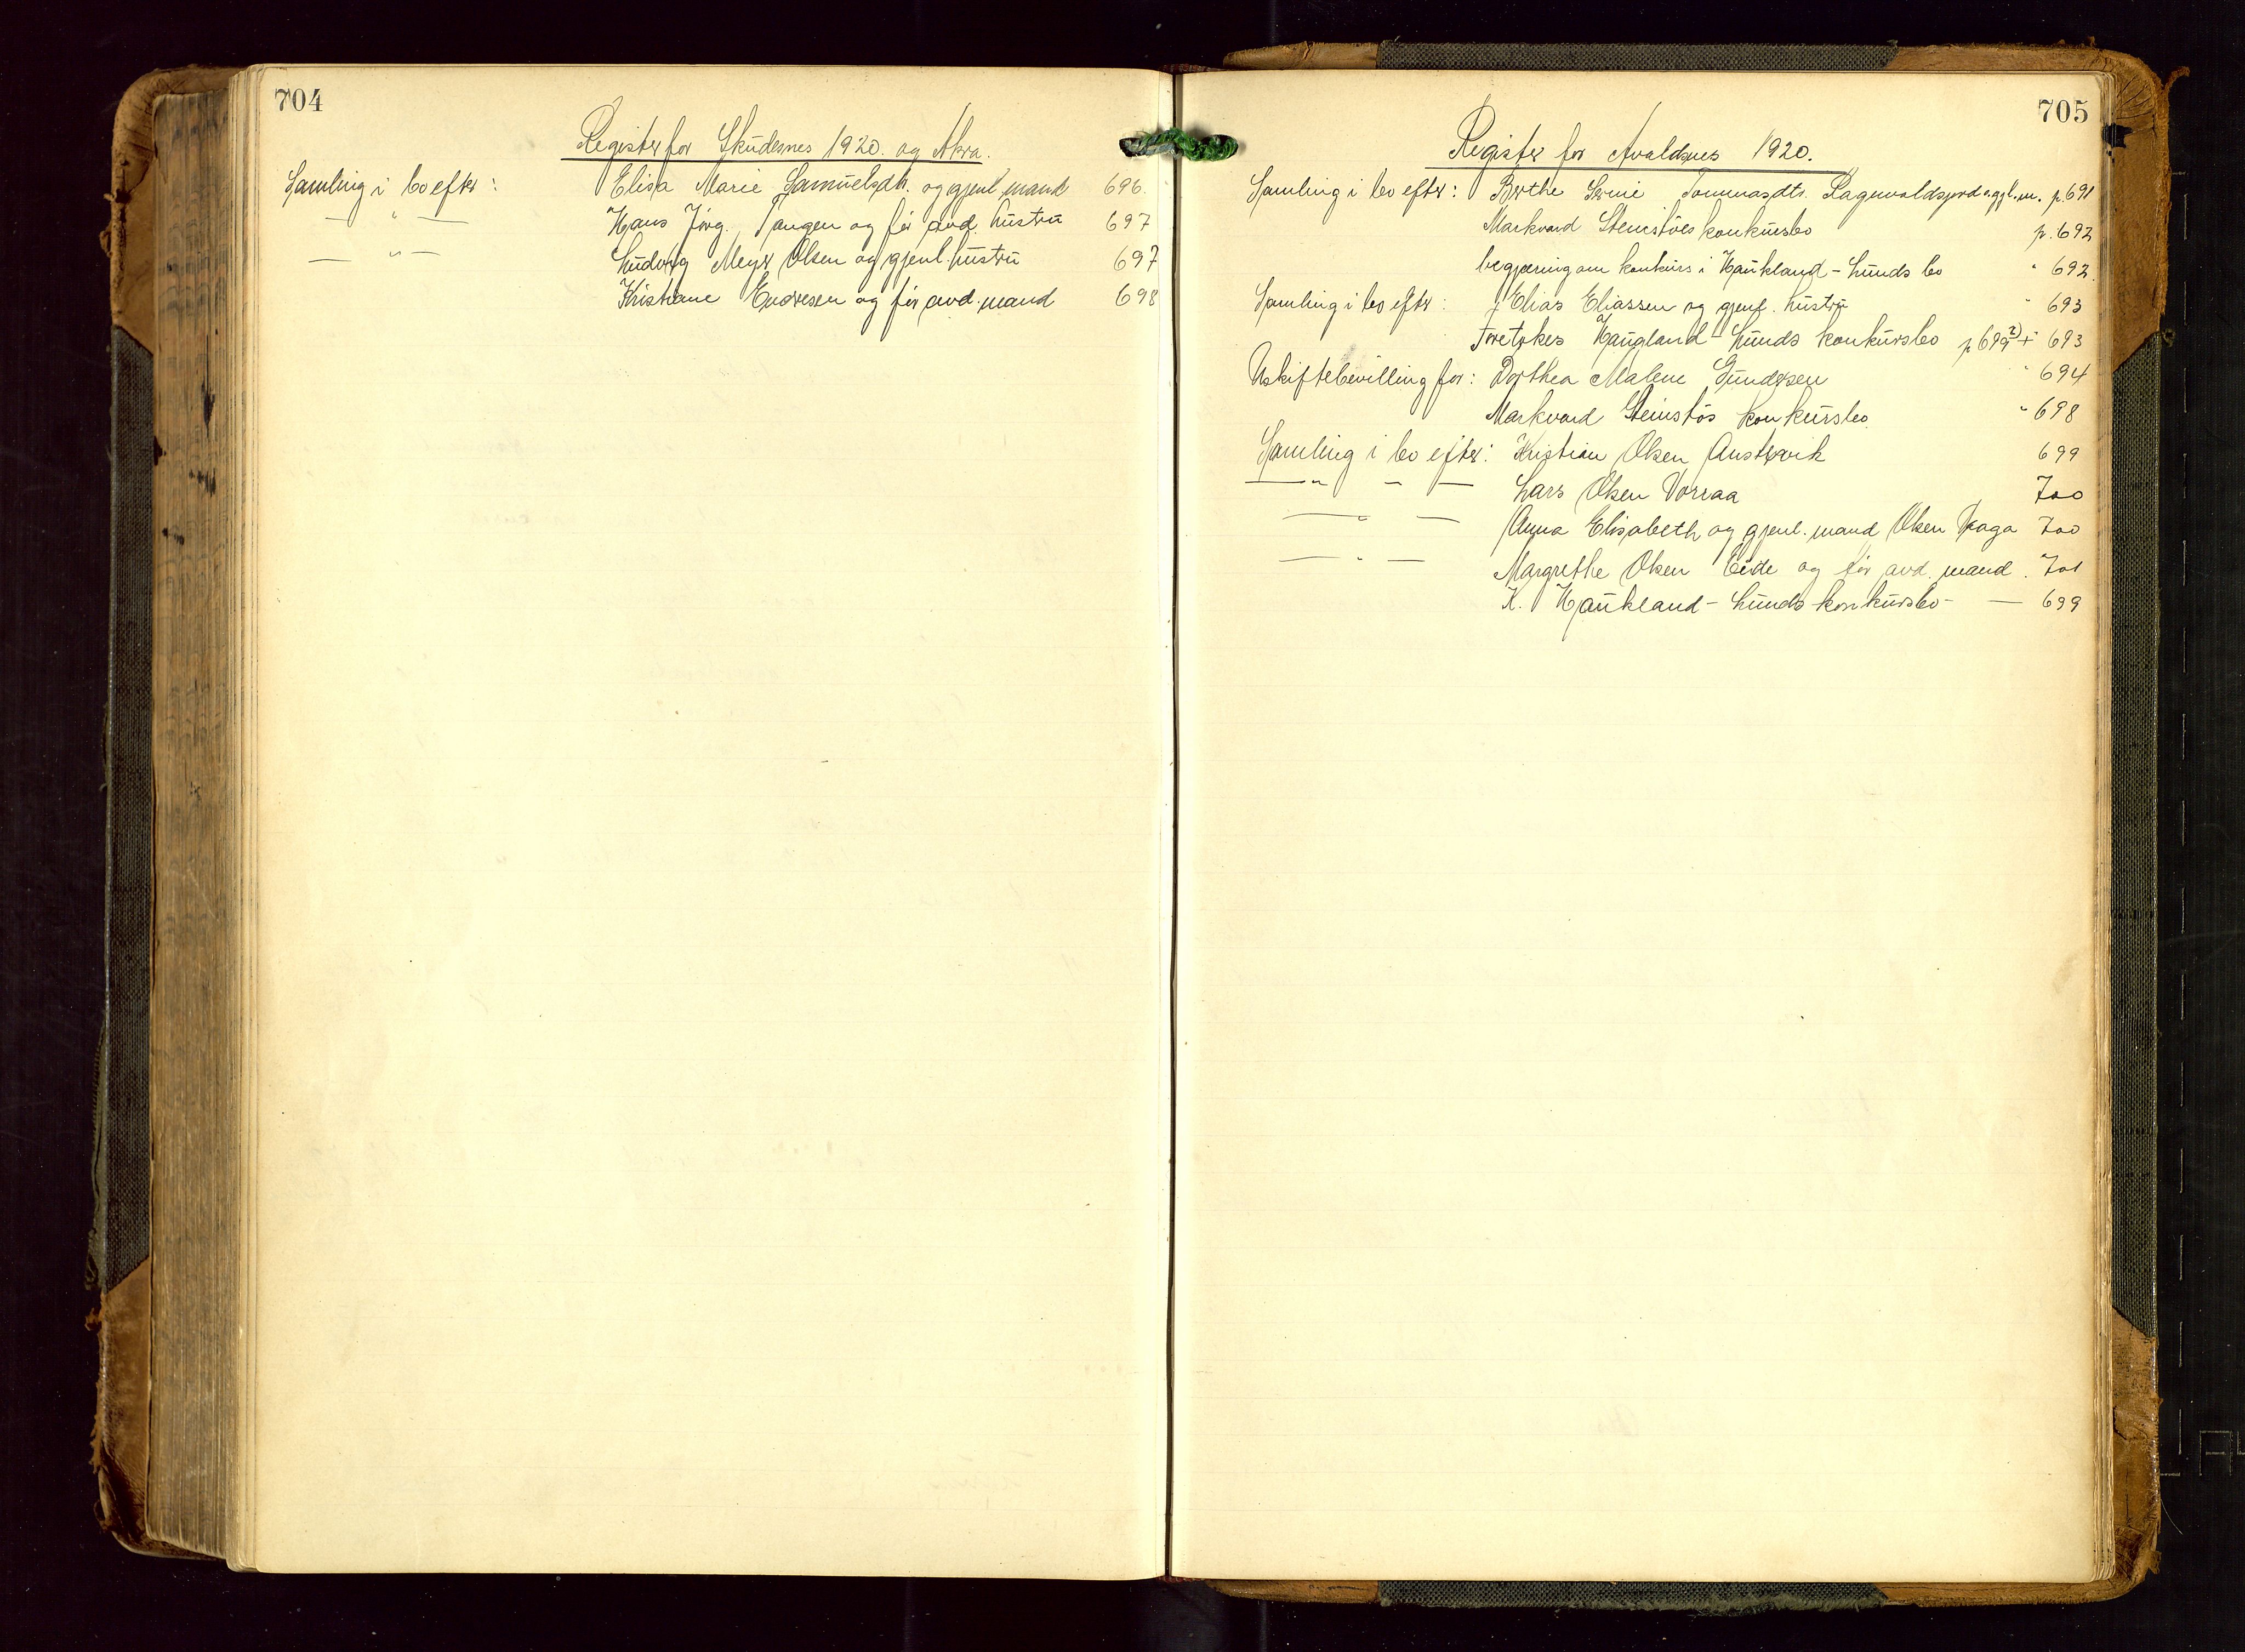 704
Register for Skudesnes 1920. og Akra.
Samling i bo efter: Elisa Marie Samuelsdtr. og gjenl. mand 696.
— " — Hans Jörg. Tangen og för avd. hustru 697
— " — Ludvig Meyer Olsen og gjenl. hustru 697
Kristiane Endresen og för avd. mand 698
705
Register for Avaldsnes 1920.
Samling i bo efter: Berthe Serine Tommasdtr. Ragnvaldsjord o.gjl.m. p. 691
Markvard Stenstöes konkursbo p. 692
begjæring om konkurs i Haukland-Lunds bo " 692
Samling i bo efter: Elias Eliassen og gjenl. hustru " 693
Foretokes Haugland-Lunds konkursbo p 699 2) + 693
Uskiftebevilling for: Dorthea Malene Gundersen " 694
Markvard Steinstös konkursbo " 698
Samling i bo efter: Kristian Olsen Austervik 699
— " — — Lars Olsen Vorraa 700
— " — Anna Elisabeth og gjenl. mand Olsen Haga 700
— " — Margrethe Olsen Eide og för avd. mand. 701
K. Haukland-Lunds konkursbo — 699